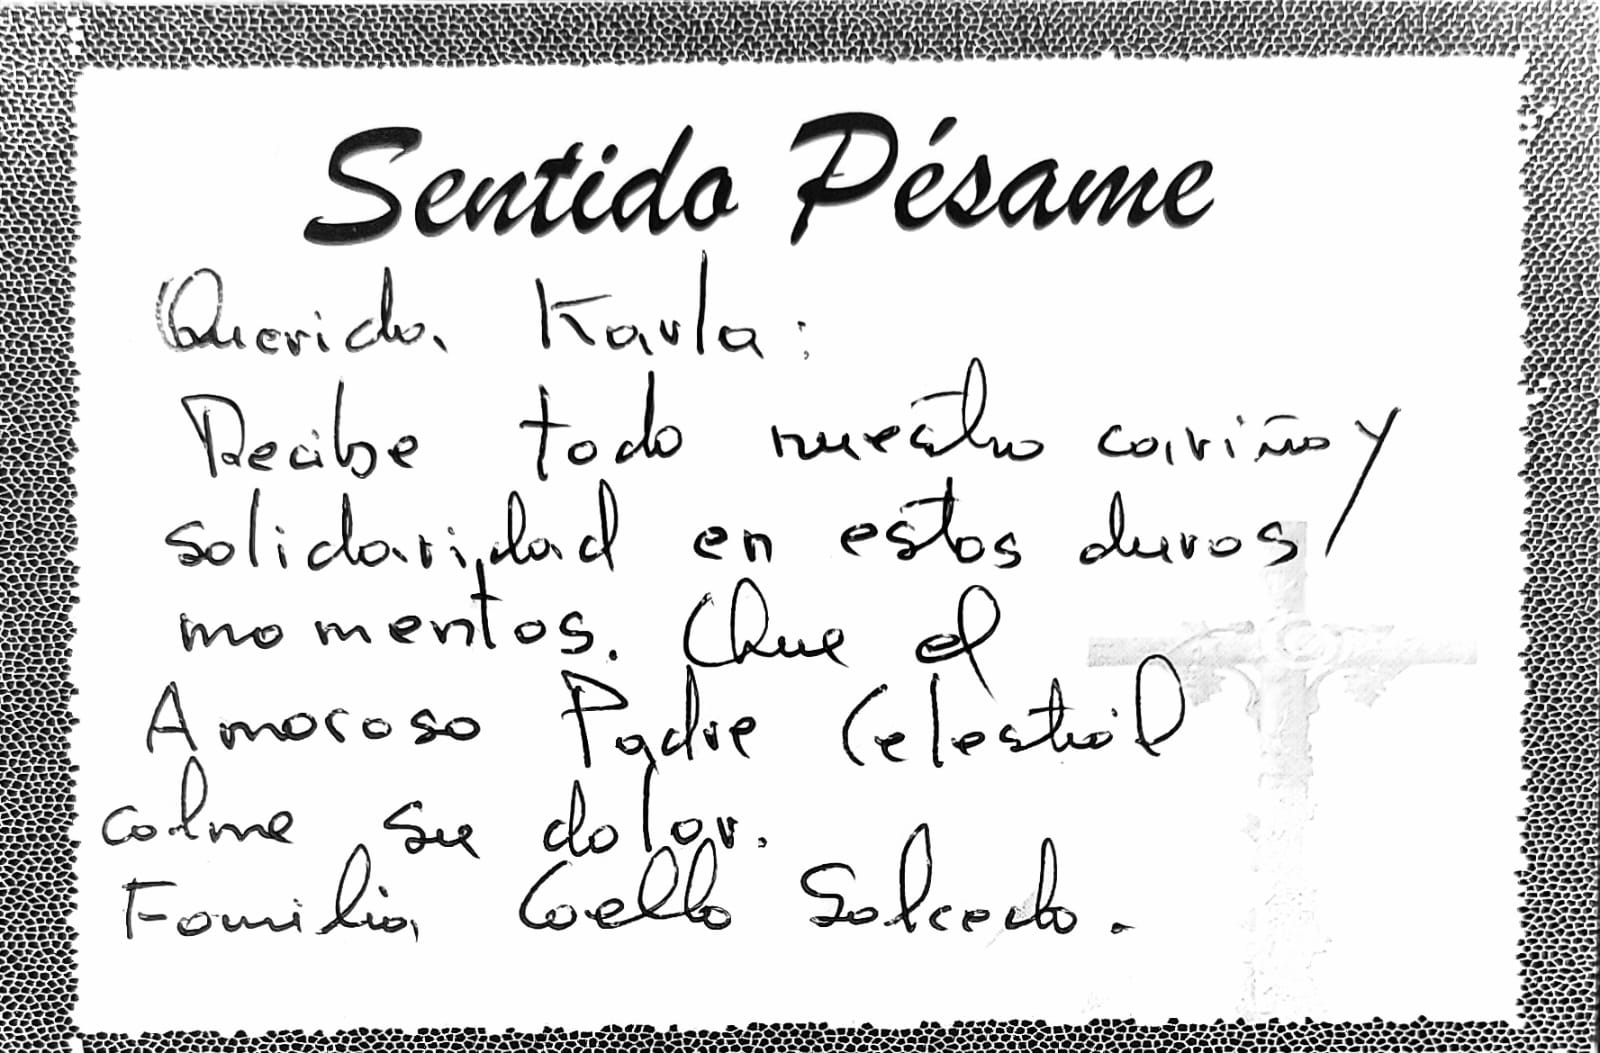 Sentido Pésame
Querida Karla:
Recibe todo nuestro cariño y
solidaridad en estos duros
momentos. Que el
Amoroso Padre Celestial
calme su dolor.
Familia Coello Salcedo.